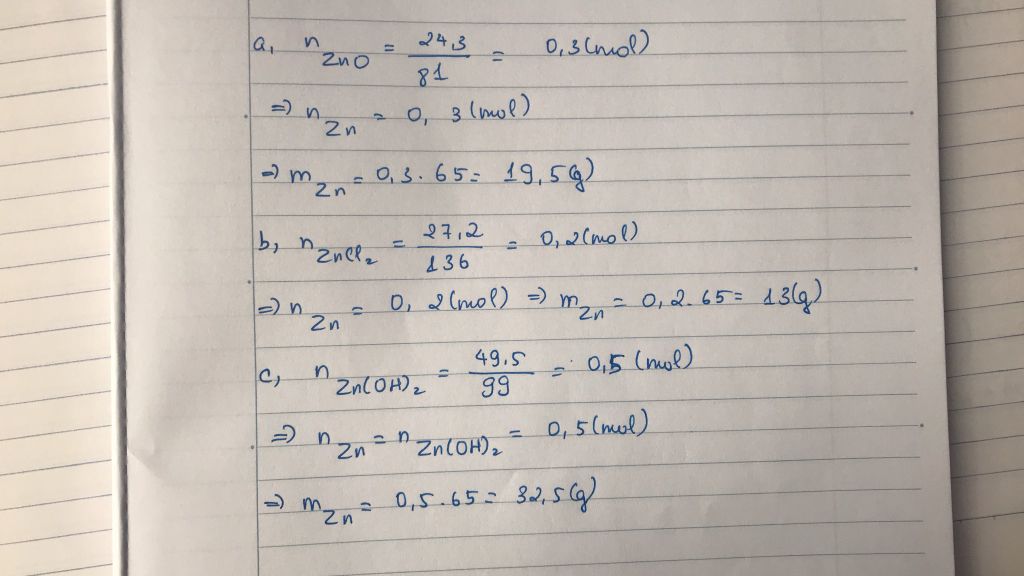 a, n ZnO = 24,3 / 81 = 0,3 (mol)
=> n Zn = 0, 3 (mol)
=> m Zn = 0,3. 65 = 19,5 (g)
b, n ZnCl₂ = 27,2 / 136 = 0,2 (mol)
=> n Zn = 0, 2 (mol) => m Zn = 0,2. 65 = 13 (g)
c, n Zn(OH)₂ = 49,5 / 99 = 0,5 (mol)
=> n Zn = n Zn(OH)₂ = 0,5 (mol)
=> m Zn = 0,5. 65 = 32,5 (g)